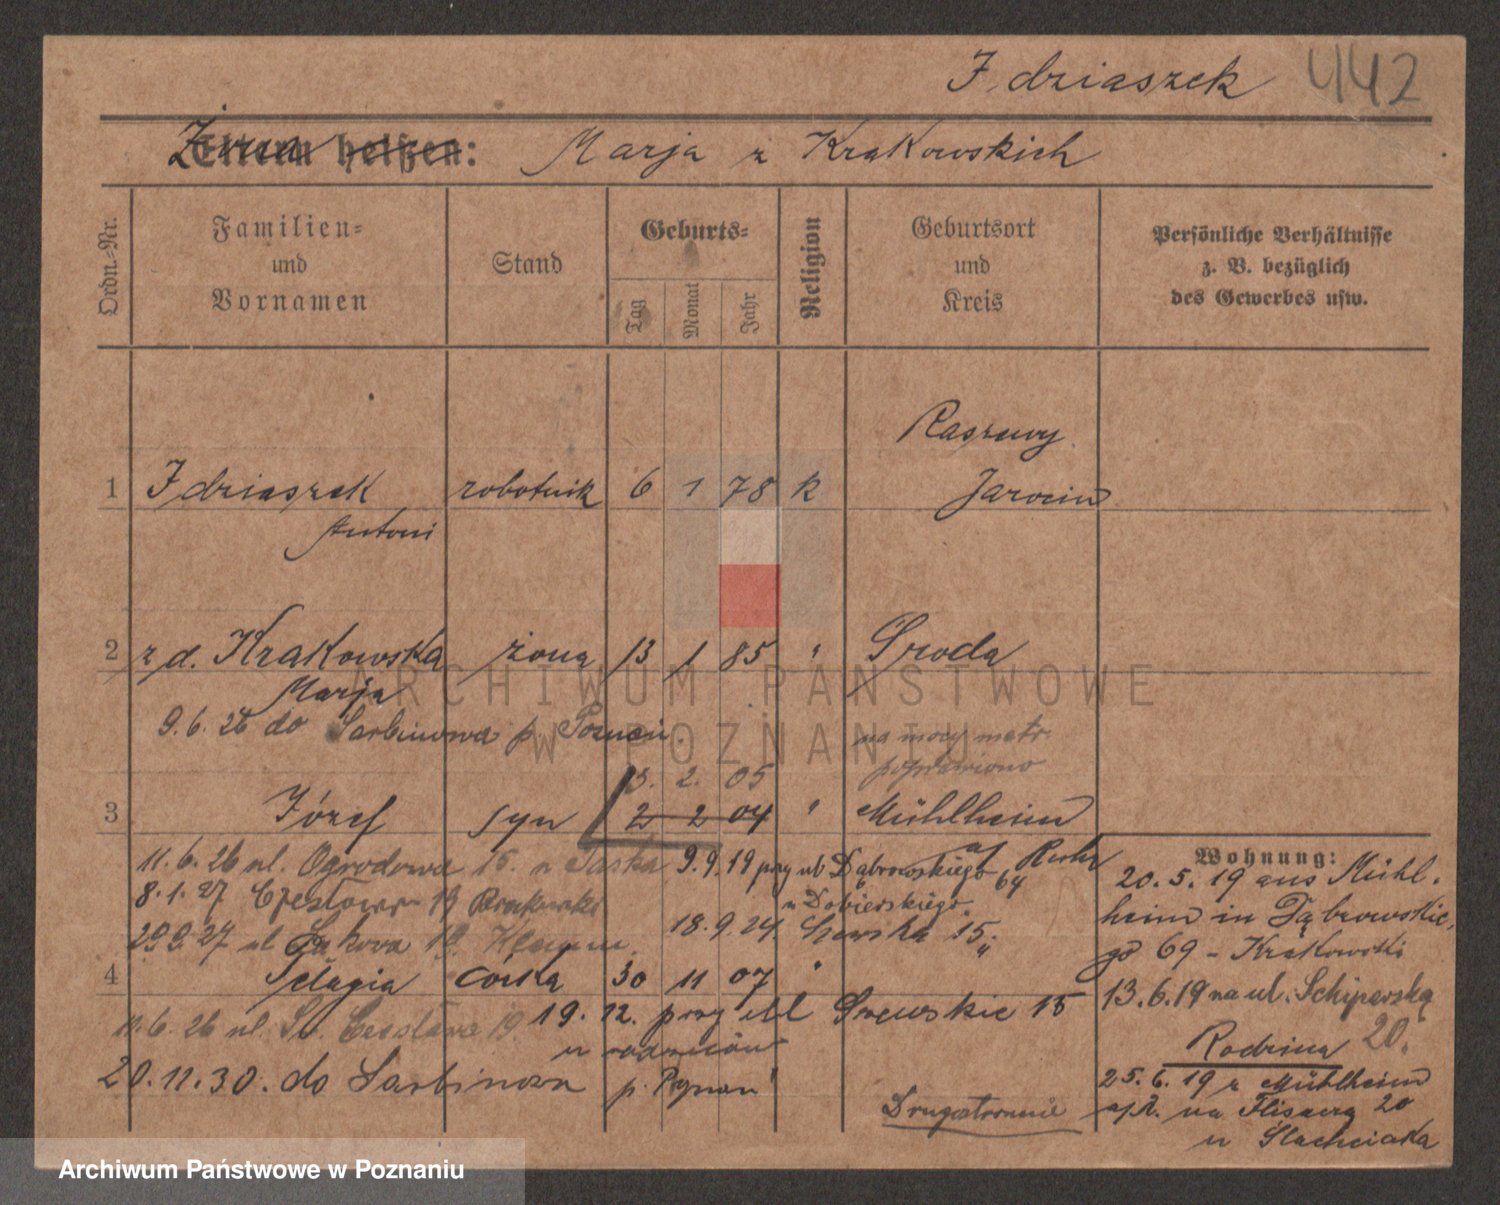 Idziaszek 442
Żona Eltern heißen: Marja z Krakowskich
Ordn.-Nr.
Familien-
und
Vornamen
Stand
Geburts-
Tag
Monat
Jahr
Religion
Geburtsort
und
Kreis
Persönliche Verhältnisse
z. B. bezüglich
des Gewerbes usw.
Raszewy
1 Idziaszek robotnik 6 1 78 k Jarocin
Antoni
2 z d. Krakowska żona 13 1 85 " Środa
Marja
9.6.26 do Sarbinowa p. Poznań.
na mocy metr.
poprawiono
3. 2. 05
3 Józef syn 2 2 04 " Mühlheim
a/ Ruhr
11.6.26 ul. Ogrodowa 15. u
9.9.19 przy ul Dąbrowskiego 64
8.1.27
u Dobierskiego
18.9.24. 15.
4 Pelagia córka 30 11 07 "
11.6.26 ul. Św. Czesława 19.
19. 12. przy ul 15
u rodziców
20.11.30. do Sarbinowa p. Poznań
Drugostronnie
Wohnung:
20.5.19 aus Mühl-
heim in Dąbrowskie-
go 69 - Krakowski
13.6.19 na ul. Schiperską
20.
Rodzina
25.6.19 z Mühlheim
a/R. na 20
u
ARCHIWUM PAŃSTWOWE
W POZNANIU
Archiwum Państwowe w Poznaniu